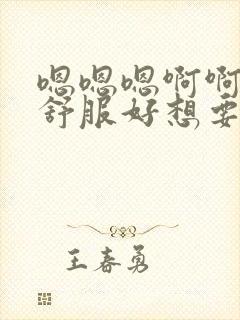 嗯嗯嗯啊啊
舒服好想要
王春勇